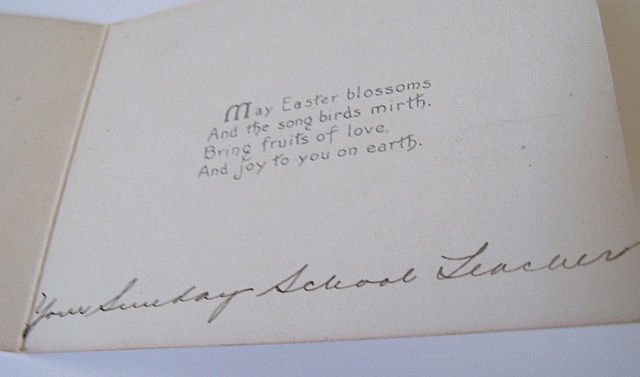 May Easter blossoms
And the song birds mirth.
Bring fruits of love.
And joy to you on earth.
Your Sunday School Teacher